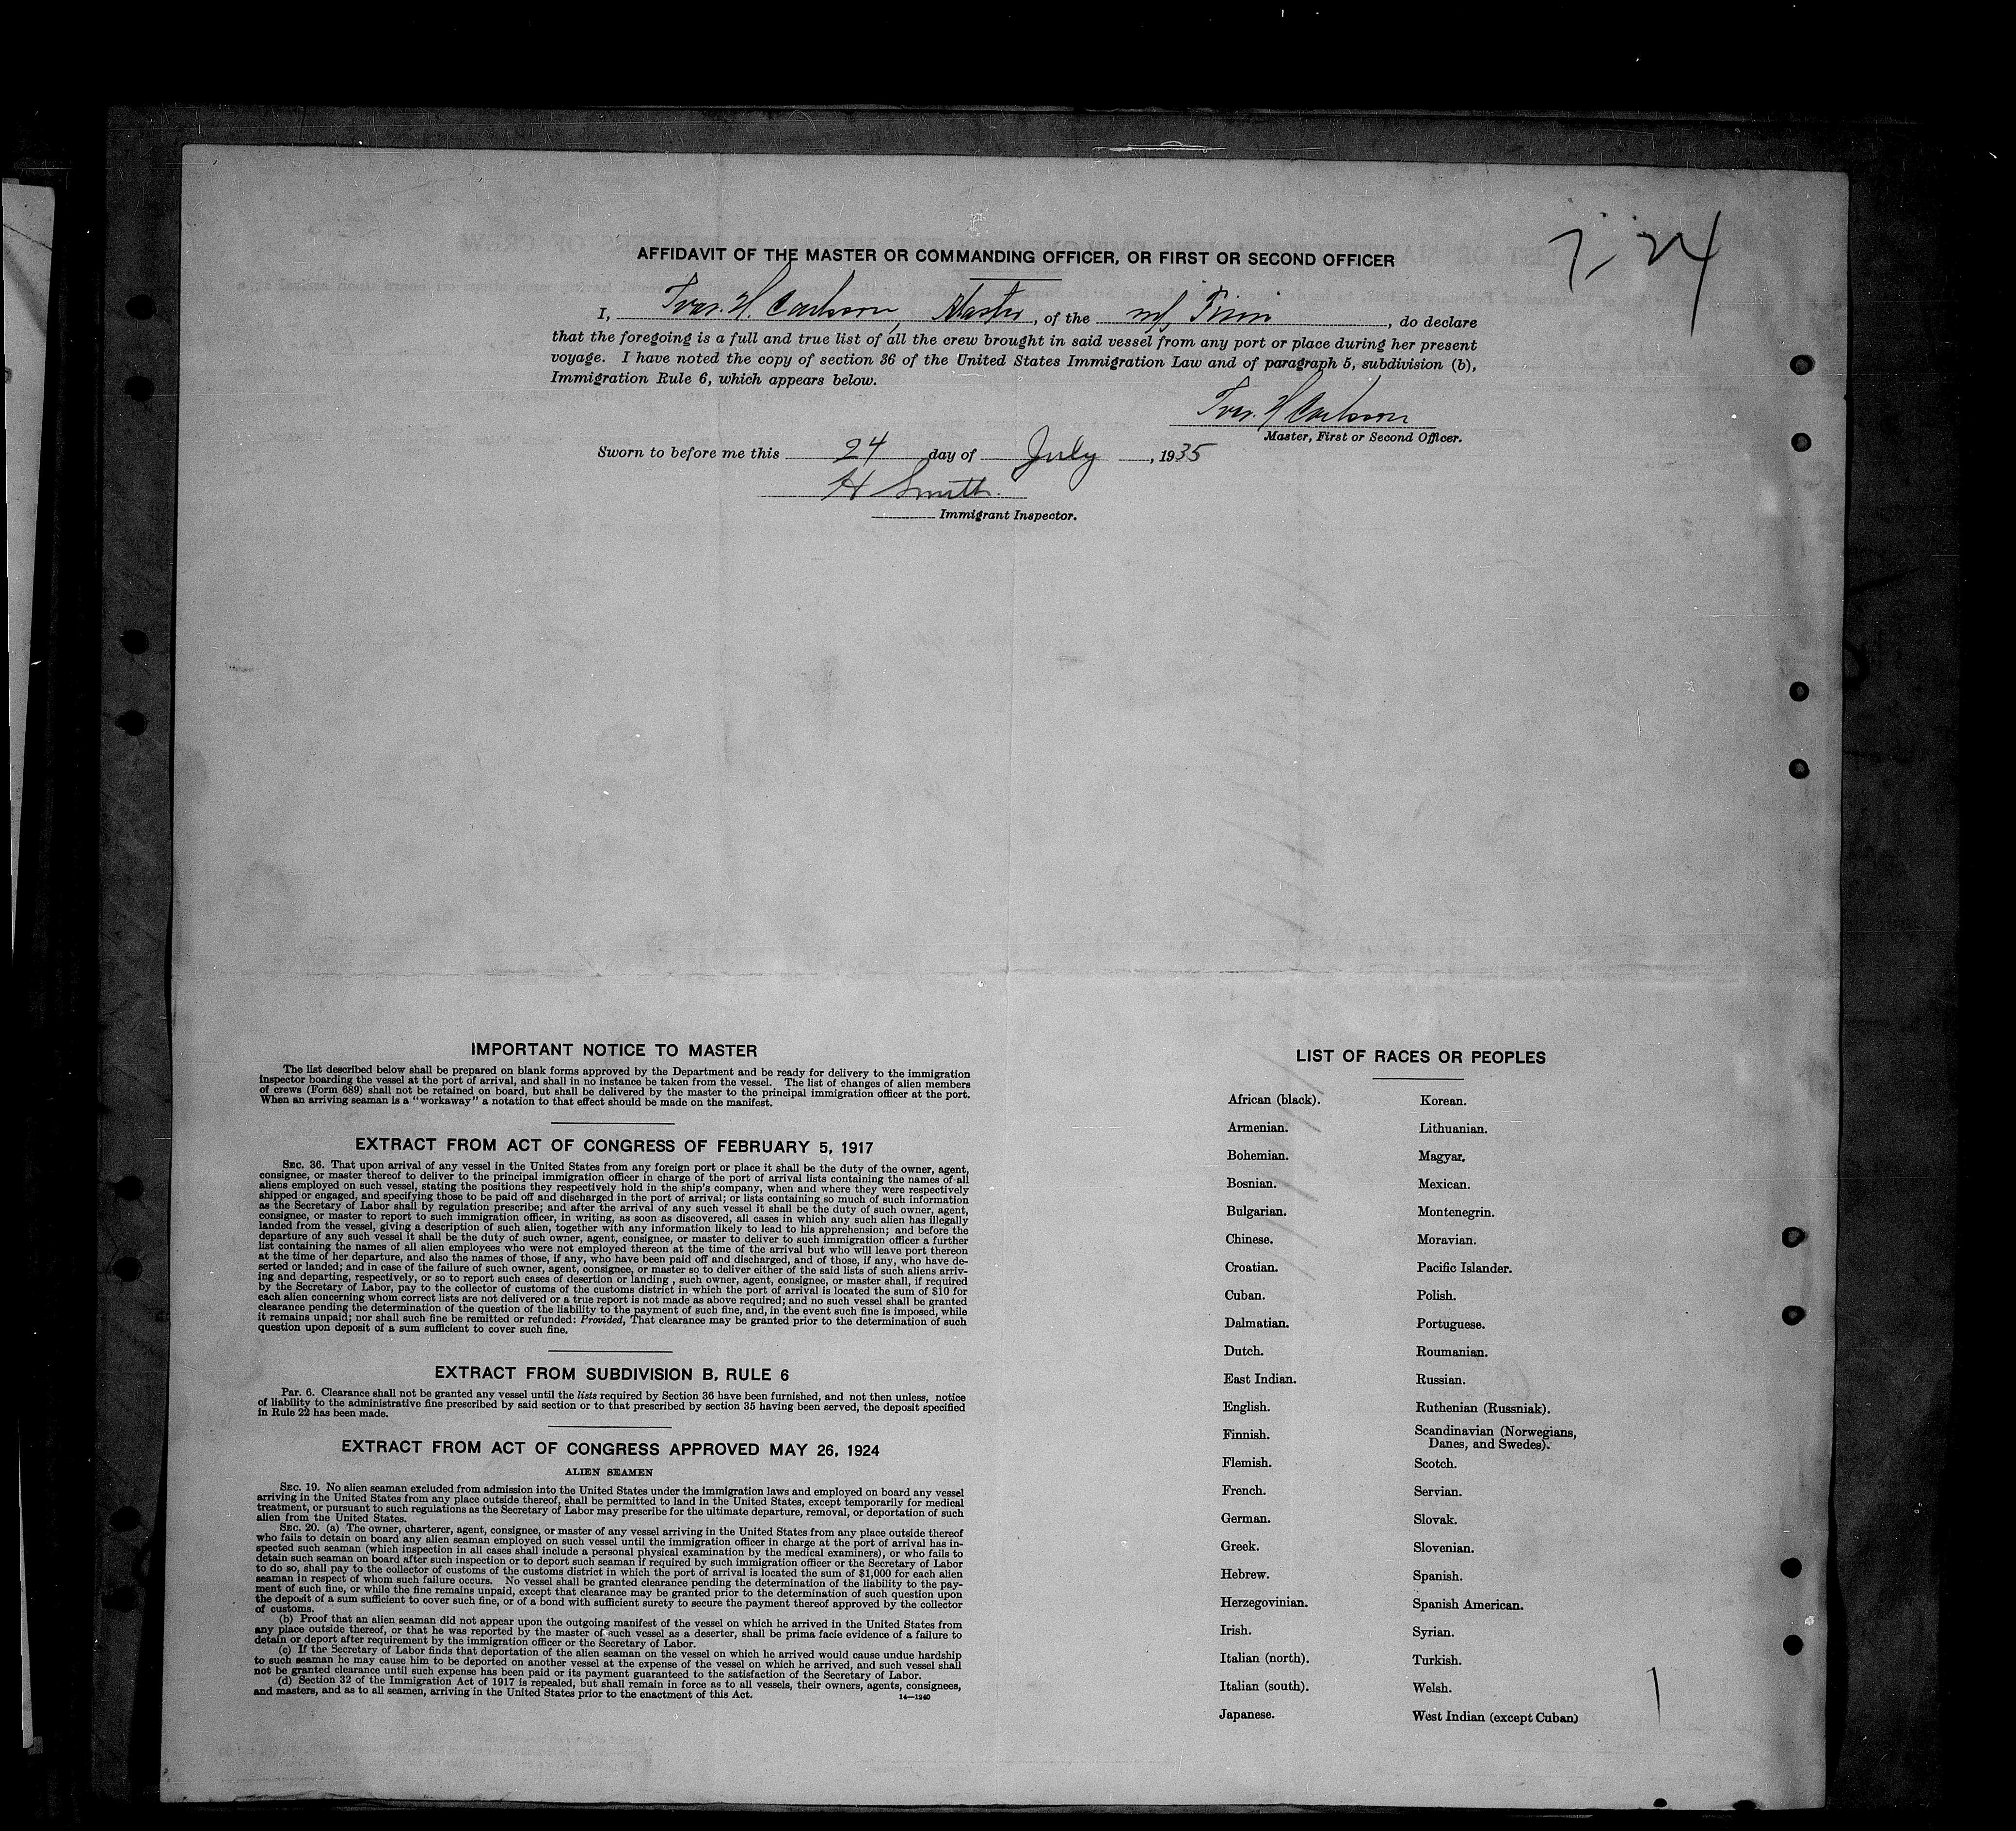 7-24
AFFIDAVIT OF THE MASTER OR COMMANDING OFFICER, OR FIRST OR SECOND OFFICER
I, Ivar. H. Carlsson, Master, of the m/s, do declare
that the foregoing is a full and true list of all the crew brought in said vessel from any port or place during her present
voyage. I have noted the copy of section 36 of the United States Immigration Law and of paragraph 5, subdivision (b),
Immigration Rule 6, which appears below.
Ivar. H Carlsson
Master, First or Second Officer.
Sworn to before me this 24 day of July, 1935
H Smith.
Immigrant Inspector.
IMPORTANT NOTICE TO MASTER
The list described below shall be prepared on blank forms approved by the Department and be ready for delivery to the immigration
inspector boarding the vessel at the port of arrival, and shall in no instance be taken from the vessel. The list of changes of alien members
of crews (Form 689) shall not be retained on board, but shall be delivered by the master to the principal immigration officer at the port.
When an arriving seaman is a "workaway" a notation to that effect should be made on the manifest.
EXTRACT FROM ACT OF CONGRESS OF FEBRUARY 5, 1917
SEC. 36. That upon arrival of any vessel in the United States from any foreign port or place it shall be the duty of the owner, agent,
consignee, or master thereof to deliver to the principal immigration officer in charge of the port of arrival lists containing the names of all
aliens employed on such vessel, stating the positions they respectively hold in the ship's company, when and where they were respectively
shipped or engaged, and specifying those to be paid off and discharged in the port of arrival; or lists containing so much of such information
as the Secretary of Labor shall by regulation prescribe; and after the arrival of any such vessel it shall be the duty of such owner, agent,
consignee, or master to report to such immigration officer, in writing, as soon as discovered, all cases in which any such alien has illegally
landed from the vessel, giving a description of such alien, together with any information likely to lead to his apprehension; and before the
departure of any such vessel it shall be the duty of such owner, agent, consignee, or master to deliver to such immigration officer a further
list containing the names of all alien employees who were not employed thereon at the time of the arrival but who will leave port thereon
at the time of her departure, and also the names of those, if any, who have been paid off and discharged, and of those, if any, who have de-
serted or landed; and in case of the failure of such owner, agent, consignee, or master so to deliver either of the said lists of such aliens arriv-
ing and departing, respectively, or so to report such cases of desertion or landing , such owner, agent, consignee, or master shall, if required
by the Secretary of Labor, pay to the collector of customs of the customs district in which the port of arrival is located the sum of $10 for
each alien concerning whom correct lists are not delivered or a true report is not made as above required; and no such vessel shall be granted
clearance pending the determination of the question of the liability to the payment of such fine, and, in the event such fine is imposed, while
it remains unpaid; nor shall such fine be remitted or refunded: Provided, That clearance may be granted prior to the determination of such
question upon deposit of a sum sufficient to cover such fine.
EXTRACT FROM SUBDIVISION B, RULE 6
Par. 6. Clearance shall not be granted any vessel until the lists required by Section 36 have been furnished, and not then unless, notice
of liability to the administrative fine prescribed by said section or to that prescribed by section 35 having been served, the deposit specified
in Rule 22 has been made.
EXTRACT FROM ACT OF CONGRESS APPROVED MAY 26, 1924
ALIEN SEAMEN
SEC. 19. No alien seaman excluded from admission into the United States under the immigration laws and employed on board any vessel
arriving in the United States from any place outside thereof, shall be permitted to land in the United States, except temporarily for medical
treatment, or pursuant to such regulations as the Secretary of Labor may prescribe for the ultimate departure, removal, or deportation of such
alien from the United States.
SEC. 20. (a) The owner, charterer, agent, consignee, or master of any vessel arriving in the United States from any place outside thereof
who fails to detain on board any alien seaman employed on such vessel until the immigration officer in charge at the port of arrival has in-
spected such seaman (which inspection in all cases shall include a personal physical examination by the medical examiners), or who fails to
detain such seaman on board after such inspection or to deport such seaman if required by such immigration officer or the Secretary of Labor
to do so, shall pay to the collector of customs of the customs district in which the port of arrival is located the sum of $1,000 for each alien
seaman in respect of whom such failure occurs. No vessel shall be granted clearance pending the determination of the liability to the pay-
ment of such fine, or while the fine remains unpaid, except that clearance may be granted prior to the determination of such question upon
the deposit of a sum sufficient to cover such fine, or of a bond with sufficient surety to secure the payment thereof approved by the collector
of customs.
(b) Proof that an alien seaman did not appear upon the outgoing manifest of the vessel on which he arrived in the United States from
any place outside thereof, or that he was reported by the master of such vessel as a deserter, shall be prima facie evidence of a failure to
detain or deport after requirement by the immigration officer or the Secretary of Labor.
(c) If the Secretary of Labor finds that deportation of the alien seaman on the vessel on which he arrived would cause undue hardship
to such seaman he may cause him to be deported on another vessel at the expense of the vessel on which he arrived, and such vessel shall
not be granted clearance until such expense has been paid or its payment guaranteed to the satisfaction of the Secretary of Labor.
(d) Section 32 of the Immigration Act of 1917 is repealed, but shall remain in force as to all vessels, their owners, agents, consignees,
and masters, and as to all seamen, arriving in the United States prior to the enactment of this Act.
14—1240
LIST OF RACES OR PEOPLES
African (black).
Armenian.
Bohemian.
Bosnian.
Bulgarian.
Chinese.
Croatian.
Cuban.
Dalmatian.
Dutch.
East Indian.
English.
Finnish.
Flemish.
French.
German.
Greek.
Hebrew.
Herzegovinian.
Irish.
Italian (north).
Italian (south).
Japanese.
Korean.
Lithuanian.
Magyar.
Mexican.
Montenegrin.
Moravian.
Pacific Islander.
Polish.
Portuguese.
Roumanian.
Russian.
Ruthenian (Russniak).
Scandinavian (Norwegians,
Danes, and Swedes).
Scotch.
Servian.
Slovak.
Slovenian.
Spanish.
Spanish American.
Syrian.
Turkish.
Welsh.
West Indian (except Cuban)